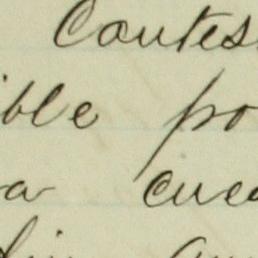 Contes
ible po
a cue